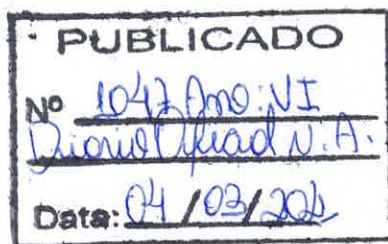 PUBLICADO
Nº 1047 Ano: VI
Diario Oficial N. A.
Data: 04 / 03 / 2024